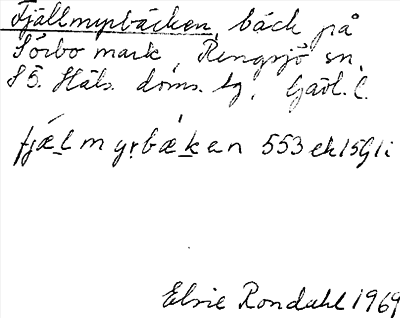 Fjällmyrbäcken, bäck på
Sörbo mark, Rengsjö sn,
SÖ. Häls. doms. tg, Gävl. l.
fjælmyrbækən 553 ek 15 G 1 i
Elsie Rondahl 1969